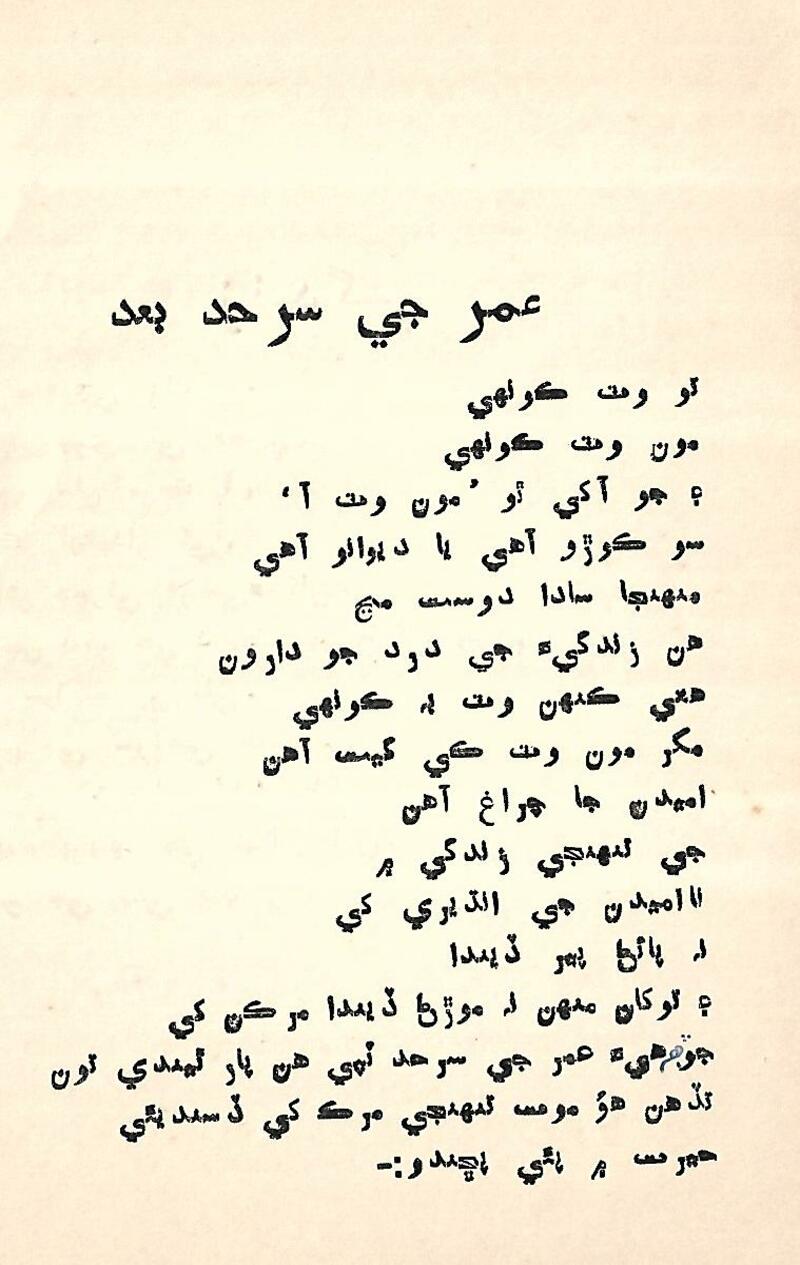 عمر جي سرحد بعد
تو وٽ ڪونهي
مون وٽ ڪونهي
۽ جو آکي ٿو ’مون وٽ آ‘
سو ڪوڙو آهي يا ديوانو آهي
منهنجا سادا دوست مڃ
هن زندگيءَ جي درد جو دارون
هتي ڪنهن وٽ به ڪونهي
مگر مون وٽ ڪي گيت آهن
اميدن جا چراغ آهن
جي تنهنجي زندگي ۾
نااميدن جي انڌيري کي
نه پائڻ پير ڏيندا
۽ توکان منهن نه موڙڻ ڏيندا مرڪن کي
عمر جي سرحد ٽپي هن پار ٿيندي تون
تڏهن هؤ موت تنهنجي مرڪ کي ڏسندي ئي
حيرت ۾ پئي پڇندو:-